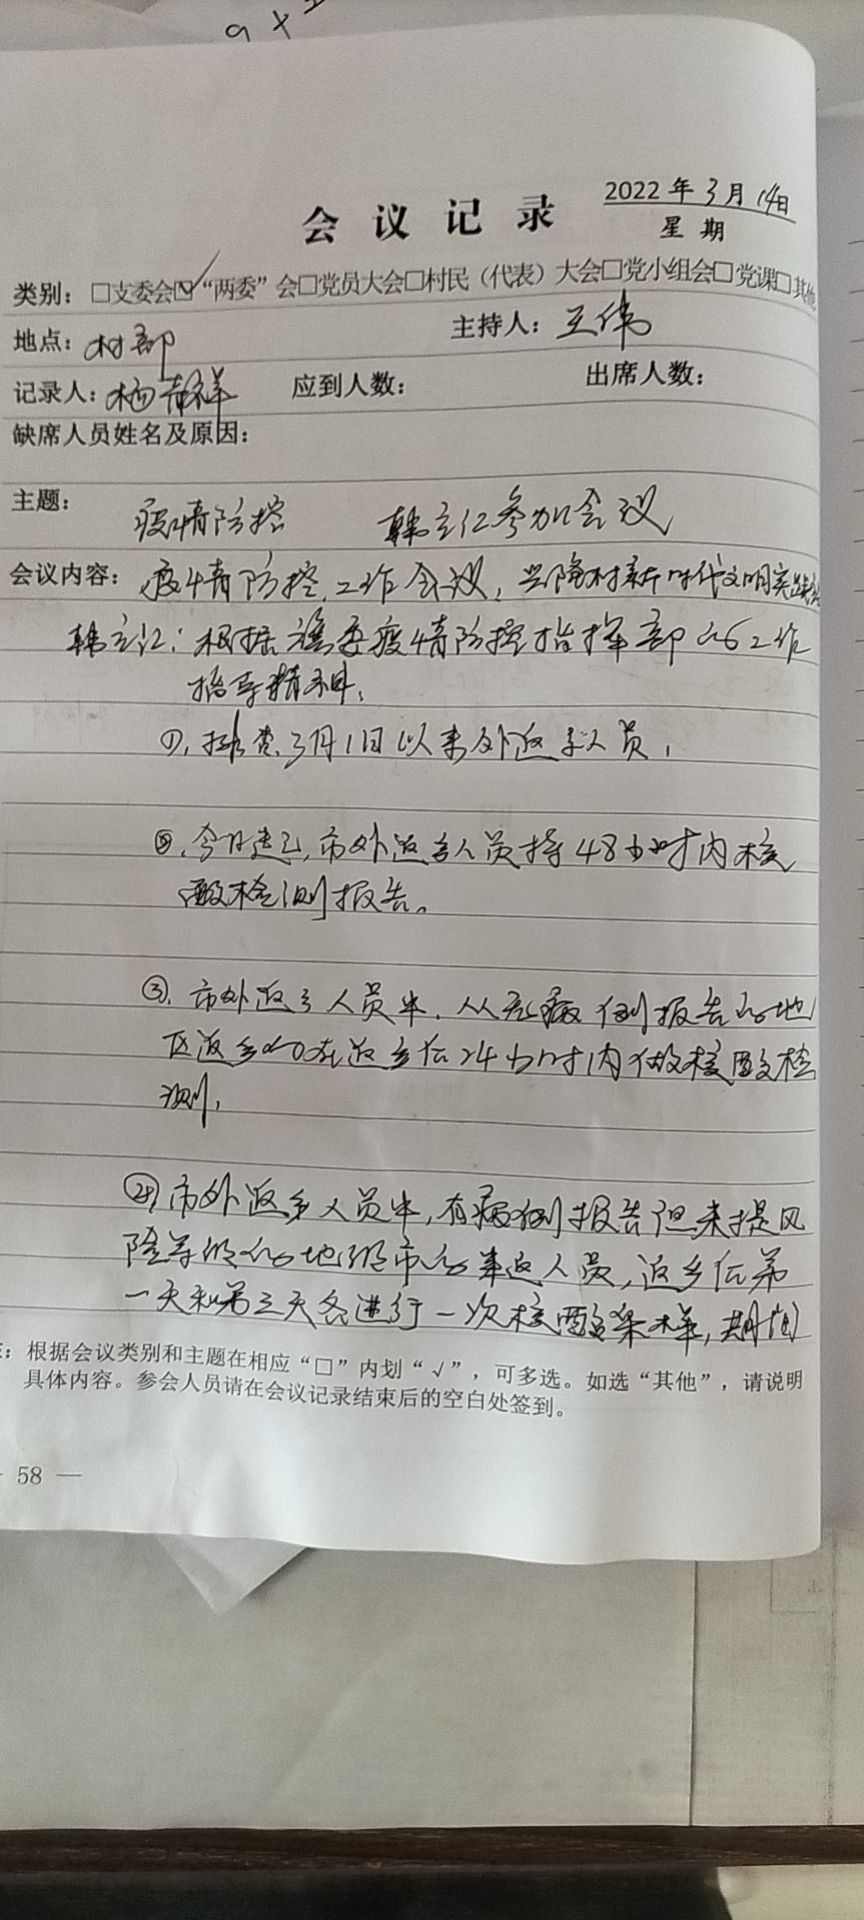 9+
会议记录
2022年3月14日
星期
类别：□支委会☑“两委”会□党员大会□村民（代表）大会□党小组会□党课□其他
地点：村部 主持人：王伟
记录人：杨青祥 应到人数： 出席人数：
缺席人员姓名及原因：
主题： 疫情防控 韩主任参加会议
会议内容：疫情防控工作会议，兴隆村新时代文明实践
韩主任：根据 疫情防控指挥部的工作
指导精神，
①，排查3月1日以来外返乡人员，
②，今日起，市外返乡人员持48小时内核
酸检测报告。
③，市外返乡人员中，从无病例报告的地
区返乡的在返乡后24小时内做核酸检
测，
④市外返乡人员中，有病例报告但未提风
险等级的地级市的 返人员，返乡后第
一天和第三天各进行一次核酸采样，期间
：根据会议类别和主题在相应“□”内划“√”，可多选。如选“其他”，请说明
具体内容。参会人员请在会议记录结束后的空白处签到。
58 —